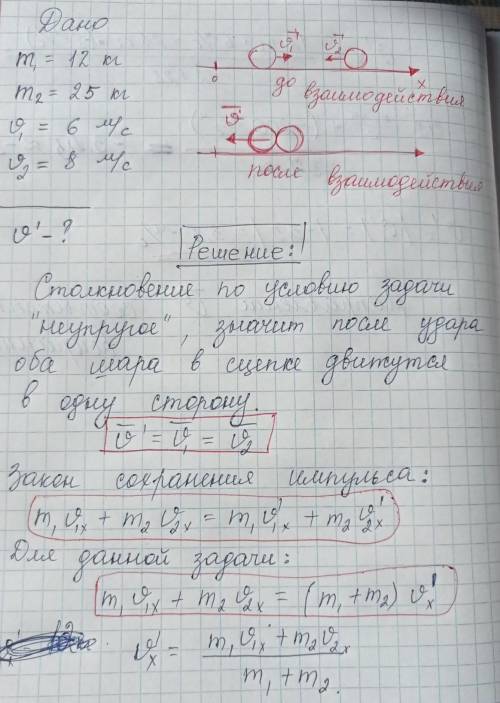 Дано
m₁ = 12 кг
m₂ = 25 кг
ϑ₁ = 6 м/с
ϑ₂ = 8 м/с
ϑ' - ?
ϑ₁ ϑ₂
0 x
до взаимодействия
ϑ'
после взаимодействия
Решение:
Столкновение по условию задачи
"неупругое", значит после удара
оба шара в сцепке движутся
в одну сторону.
ϑ' = ϑ₁ = ϑ₂
Закон сохранения импульса:
m₁ϑ₁ₓ + m₂ϑ₂ₓ = m₁ϑ'₁ₓ + m₂ϑ'₂ₓ
Для данной задачи:
m₁ϑ₁ₓ + m₂ϑ₂ₓ = (m₁ + m₂) ϑₓ'
ϑₓ' = (m₁ϑ₁ₓ + m₂ϑ₂ₓ) / (m₁ + m₂).